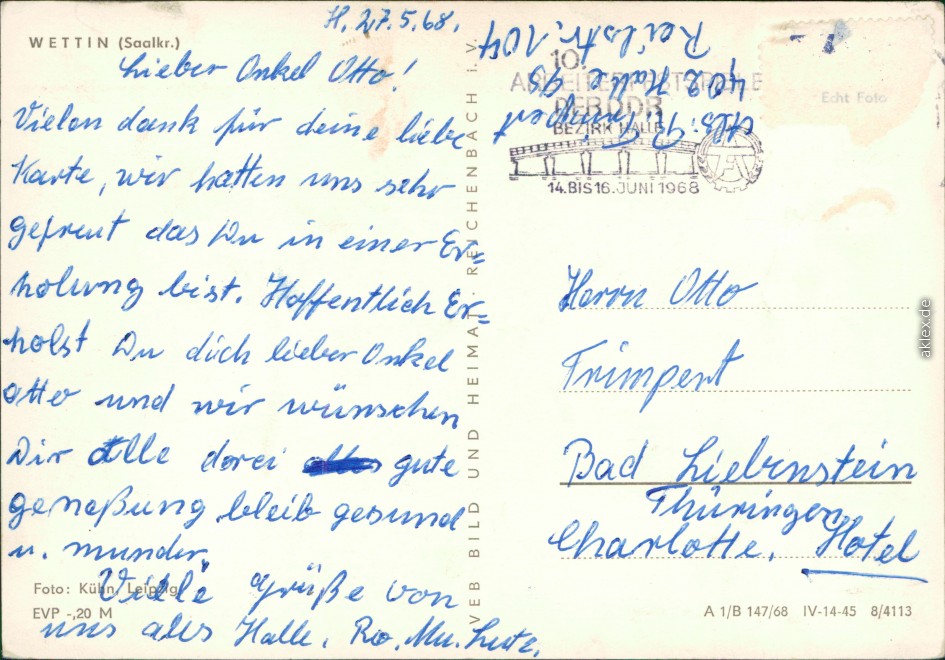 WETTIN (Saalkr.)
H. 27.5.68.
Lieber Onkel Otto!
Vielen dank für deine liebe
Karte, wir hatten uns sehr
gefreut das Du in einer Er=
holung bist. Hoffentlich Er=
holst Du dich lieber Onkel
Otto und wir wünschen
Dir Alle dorei gute
geneßung bleib gesund
u. munder.
Viele Grüße von
uns aus Halle. Ro. Mu. Lutz.
Foto: Kühn, Leipzig
EVP -,20 M
VEB BILD UND HEIMAT REICHENBACH i. V.
Abs. R. Trimpert
402 Halle 95
Reilstr. 104
10.
ARBEITERFESTSPIELE
DER DDR
BEZIRK HALLE
14. BIS 16. JUNI 1968
Echt Foto
Herrn Otto
Trimpert
Bad Liebenstein
Thüringen
Charlotte. Hotel
A 1/B 147/68 IV-14-45 8/4113
aklex.de